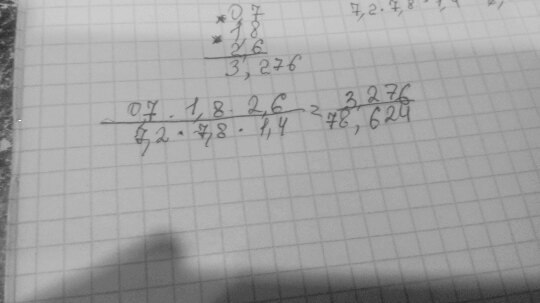 * 0 7
* 1,8
2,6
3,276
7,2 · 7,8 · 1,4
07 · 1,8 · 2,6 / 7,2 · 7,8 · 1,4 = 3,276 / 78,624